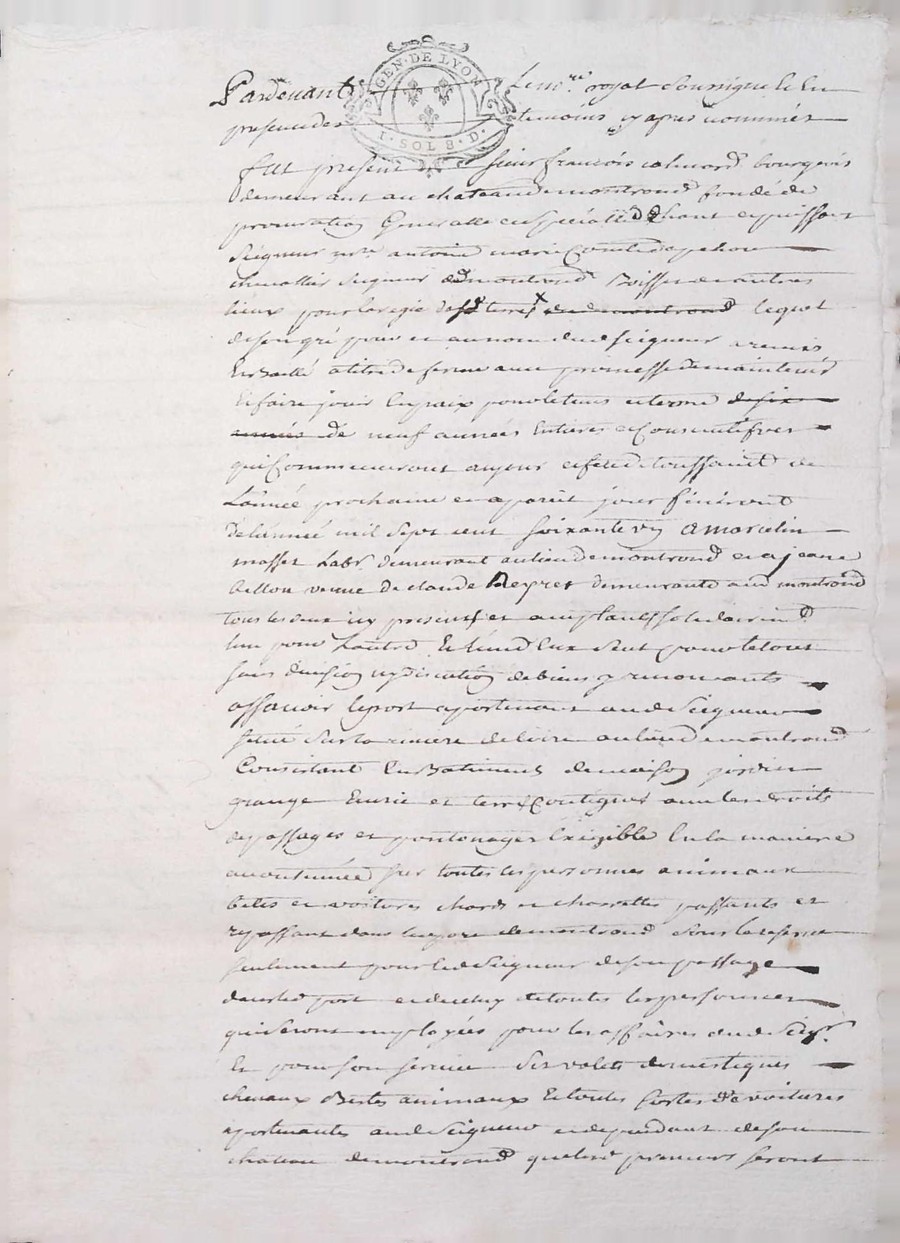 GEN. DE LYON
1. SOL 8. D.
Pardevant Le no.re royal soussigné Et En
presence des temoins cy apres nommés
fut present sieur françois bourgeois
demeurant au chateau de montrond fondé de
procuration Generalle et specialle de haut et puissant
Seigneur m.re antoine marie Comte d'apchon
chevallier Seigneur de montrond Boisset et autres
lieux pour la regie de sd terre de montrond lequel
de son gré pour et au nom dud Seigneur a remis
Et Baillé a titre de ferme avec promesse de maintenir
Et faire jouir En paix pour le tems et terme de six
années de neuf années Entieres et Consecutifves
qui Commenceront au jour et feste de toussaint de
L'année prochaine et a pareil jour finiront
de l'année mil sept cent soixante a marcelin
masset Labr demeurant au lieu de montrond et a jeane
veuve de claude Peyret demeurante aud montrond
tous les deux icy presents et acceptants solidairemt
lun pour Lautre Et lun d'Eux seul pour le tout
sans division ny discution de biens y renonçants
assavoir le port apartenant aud Seigneur
situé sur la riviere de loire au lieu de montrond
Consistant En Batiments de maison jardin
grange Ecurie et terre Contigue avec les droits
de passages et pontonages Exigible En la maniere
accoutumée sur toutes les personnes animaux
betes et voitures chards et charrettes passants et
repassant dans le port de montrond sous la reserve
seulement pour led Seigneur de son passage
dans led port et de celuy de toutes les personnes
qui seront employées pour les affaires dud Seigr
Et pour son service Ses valets domestiques
chevaux Bestes animaux Et toutes sortes de voitures
apartenantes aud Seigneur et dependant de son
chateau de montrond que les preneurs seront